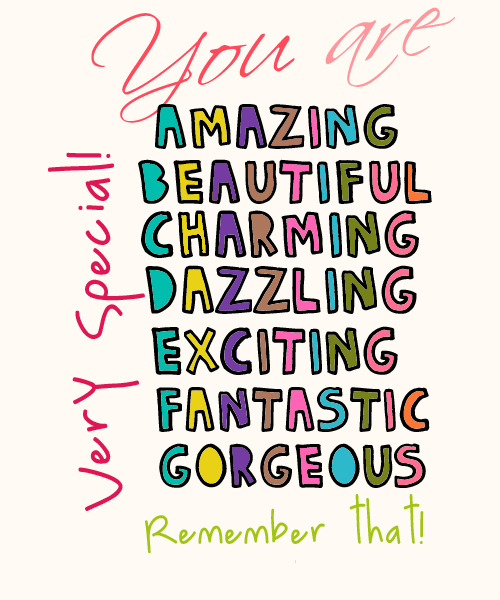 You are
AMAZING
BEAUTIFUL
CHARMING
DAZZLING
EXCITING
FANTASTIC
GORGEOUS
Very Special!
Remember that!